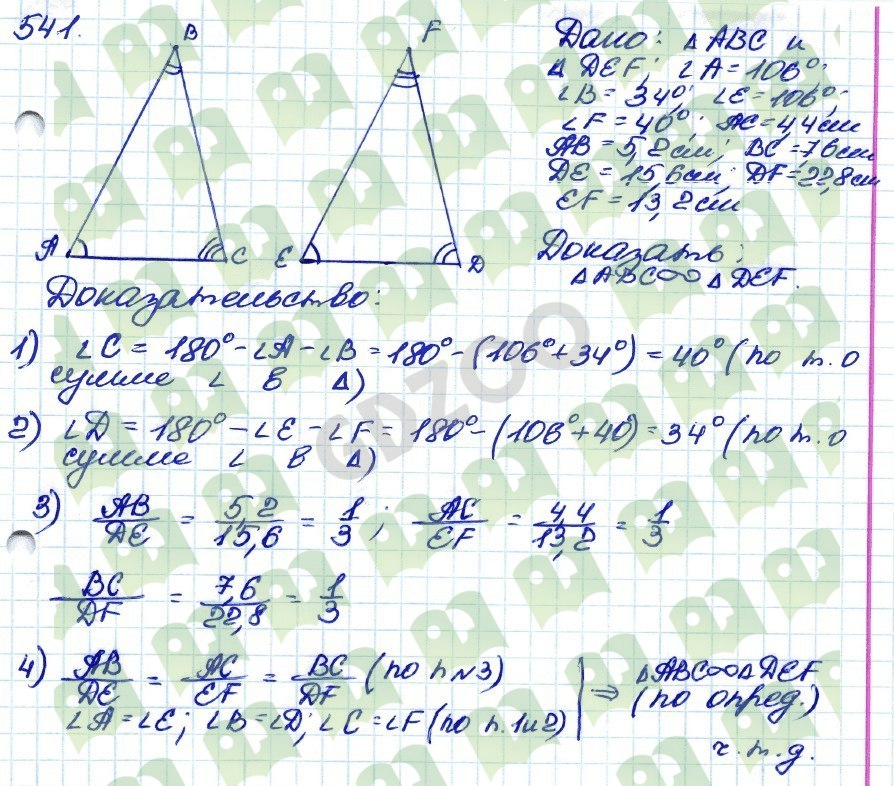 541.
B
F
A
C
E
D
Дано: △ABC и
△DEF; ∠A = 106°;
∠B = 34°; ∠E = 106°;
∠F = 40°; AC = 4,4 см
AB = 5,2 см; BC = 76 см
DE = 15,6 см; DF = 22,8 см
EF = 13,2 см
Доказать:
△ABC ∞ △DEF.
Доказательство:
1) ∠C = 180° - ∠A - ∠B = 180° - (106° + 34°) = 40° (по т. о
сумме ∠ в △)
2) ∠D = 180° - ∠E - ∠F = 180° - (106° + 40°) = 34° (по т. о
сумме ∠ в △)
3) AB/DE = 5,2/15,6 = 1/3; AC/EF = 4,4/13,2 = 1/3
BC/DF = 7,6/22,8 = 1/3
4) AB/DE = AC/EF = BC/DF (по п N3)
∠A = ∠E; ∠B = ∠D; ∠C = ∠F (по п. 1 и 2)
⇒ △ABC ∞ △DEF
(по опред.)
ч. т. д.
GDZOO